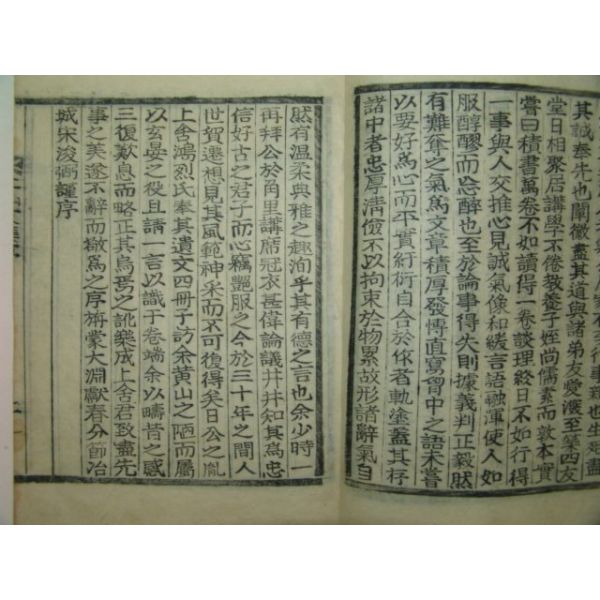 其誠奉先也闡微盡其道與諸弟友愛
堂日相聚居講學不倦敎養子姪尙儒素而敦本實
嘗曰積書萬卷不如讀得一卷談理終日不如行得
一事與人交推心見誠氣像和緩言語融渾使人如
服醇醪而忘醉也至於論事得失則據義判正毅然
有難奪之氣爲文章積厚發慱直寫胷中之語未嘗
以要好爲心而平實紆衍自合於作者軌塗盖其存
諸中者忠厚淸儉不以拘束於物累故形諸辭氣自
然有溫柔典雅之趣洵乎其有德之言也余少時一
再拜公於角里講席冠衣甚偉論議井井知其爲忠
信好古之君子而心竊艶服之今於三十年之間人
世賀遷想見其風範神采而不可復得矣日公之胤
上舍鴻烈氏奉其遺文四冊子訪余黃山之陋而屬
以玄晏之役且請一言以識于卷端余以疇昔之感
三復歎息而略正其烏焉之訛樂成上舍君致盡先
事之美遂不辭而㪣爲之序旃蒙大淵獻春分節冶
城宋浚弼謹序